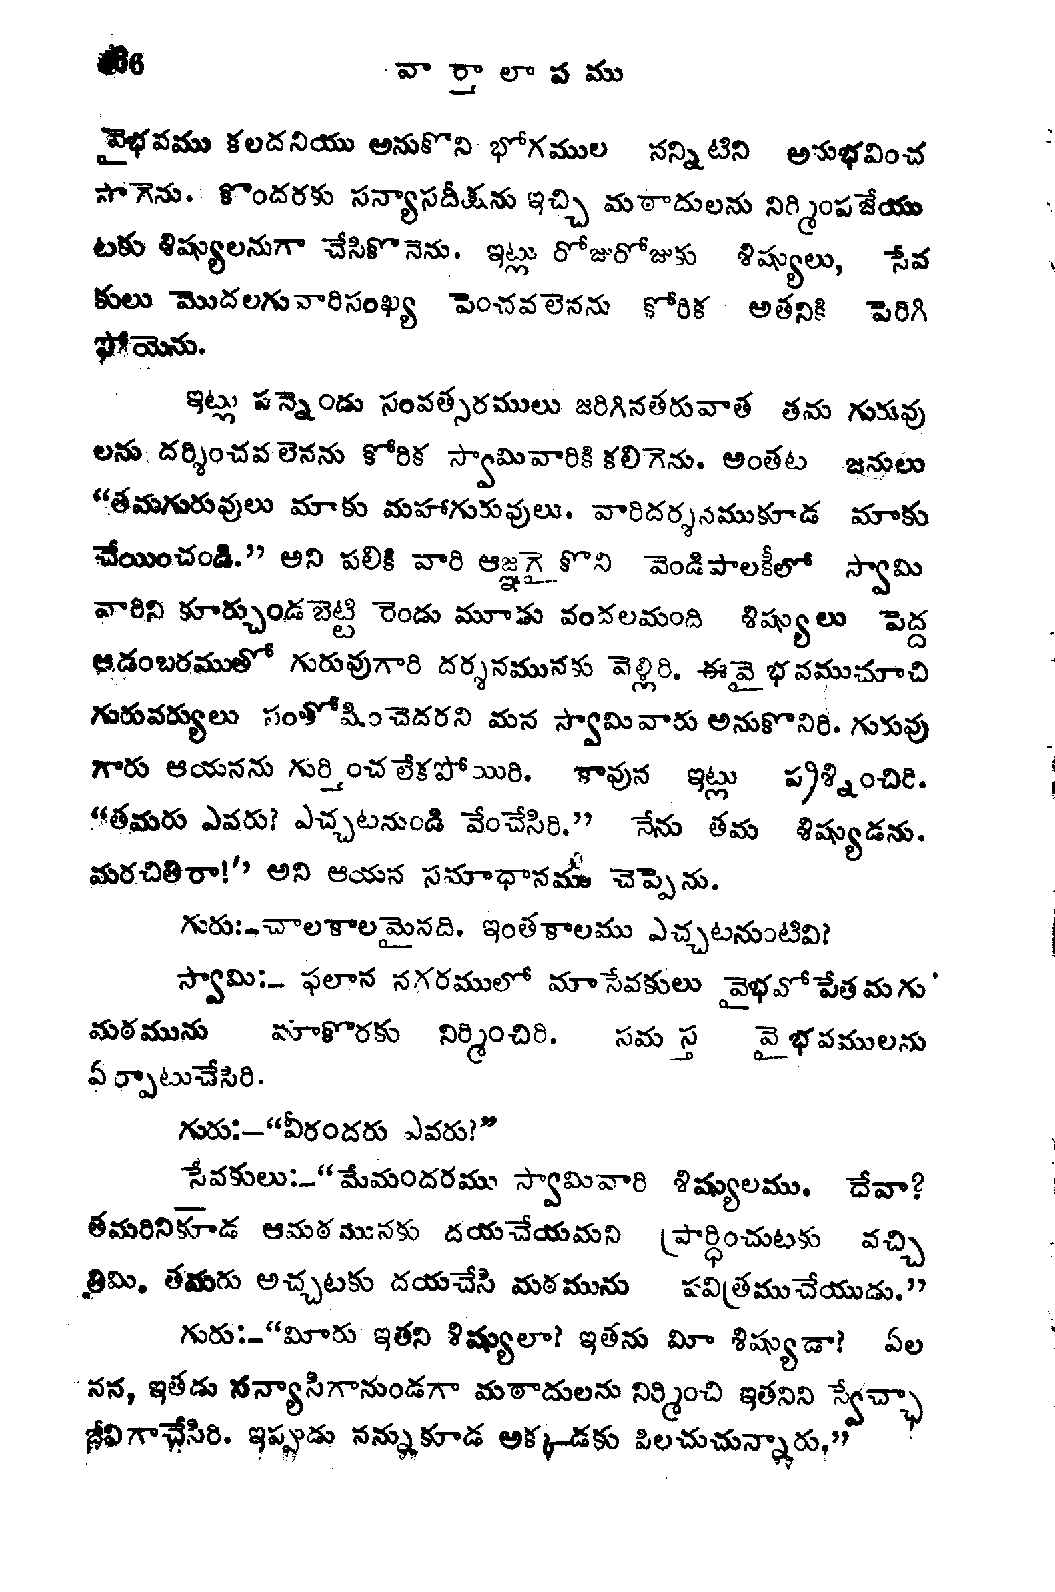 వార్తాలాపము
వైభవము కలదనియు అనుకొని భోగముల నన్నిటిని అనుభవించ
సాగెను. కొందరకు సన్యాసదీక్షను ఇచ్చి మఠాదులను నిర్మింపజేయు
టకు శిష్యులనుగా చేసికొనెను. ఇట్లు రోజురోజుకు శిష్యులు, సేవ
కులు మొదలగువారిసంఖ్య పెంచవలెనను కోరిక అతనికి పెరిగి
పోయెను.
ఇట్లు పన్నెండు సంవత్సరములు జరిగినతరువాత తను గురువు
లను దర్శించవలెనను కోరిక స్వామివారికి కలిగెను. అంతట జనులు
“తమగురువులు మాకు మహాగురువులు. వారిదర్శనముకూడ మాకు
చేయించండి.” అని పలికి వారి ఆజ్ఞగైకొని వెండిపాలకీలో స్వామి
వారిని కూర్చుండబెట్టి రెండు మూడు వందలమంది శిష్యులు పెద్ద
ఆడంబరముతో గురువుగారి దర్శనమునకు వెళ్లిరి. ఈవైభవముచూచి
గురువర్యులు సంతోషించెదరని మన స్వామివారు అనుకొనిరి. గురువు
గారు ఆయనను గుర్తించలేకపోయిరి. కావున ఇట్లు ప్రశ్నించిరి.
“తమరు ఎవరు? ఎచ్చటనుండి వేంచేసిరి.” నేను తమ శిష్యుడను.
మరచితిరా!” అని ఆయన సమాధానము చెప్పెను.
గురు:-చాలకాలమైనది. ఇంతకాలము ఎచ్చటనుంటివి?
స్వామి:- ఫలాన నగరములో మాసేవకులు వైభవోపేతమగు
మఠమును మాకొరకు నిర్మించిరి. సమస్త వైభవములను
ఏర్పాటుచేసిరి.
గురు:—“వీరందరు ఎవరు?”
సేవకులు:-“మేమందరము స్వామివారి శిష్యులము. దేవా?
తమరినికూడ ఆమఠమునకు దయచేయమని ప్రార్థించుటకు వచ్చి
తిమి. తమరు అచ్చటకు దయచేసి మఠమును పవిత్రముచేయుడు.”
గురు:-“మీరు ఇతని శిష్యులా? ఇతను మీ శిష్యుడా? ఏల
నన, ఇతడు సన్యాసిగానుండగా మఠాదులను నిర్మించి ఇతనిని స్వేచ్ఛా
జీవిగాచేసిరి. ఇప్పుడు నన్నుకూడ అక్కడకు పిలచుచున్నారు,”